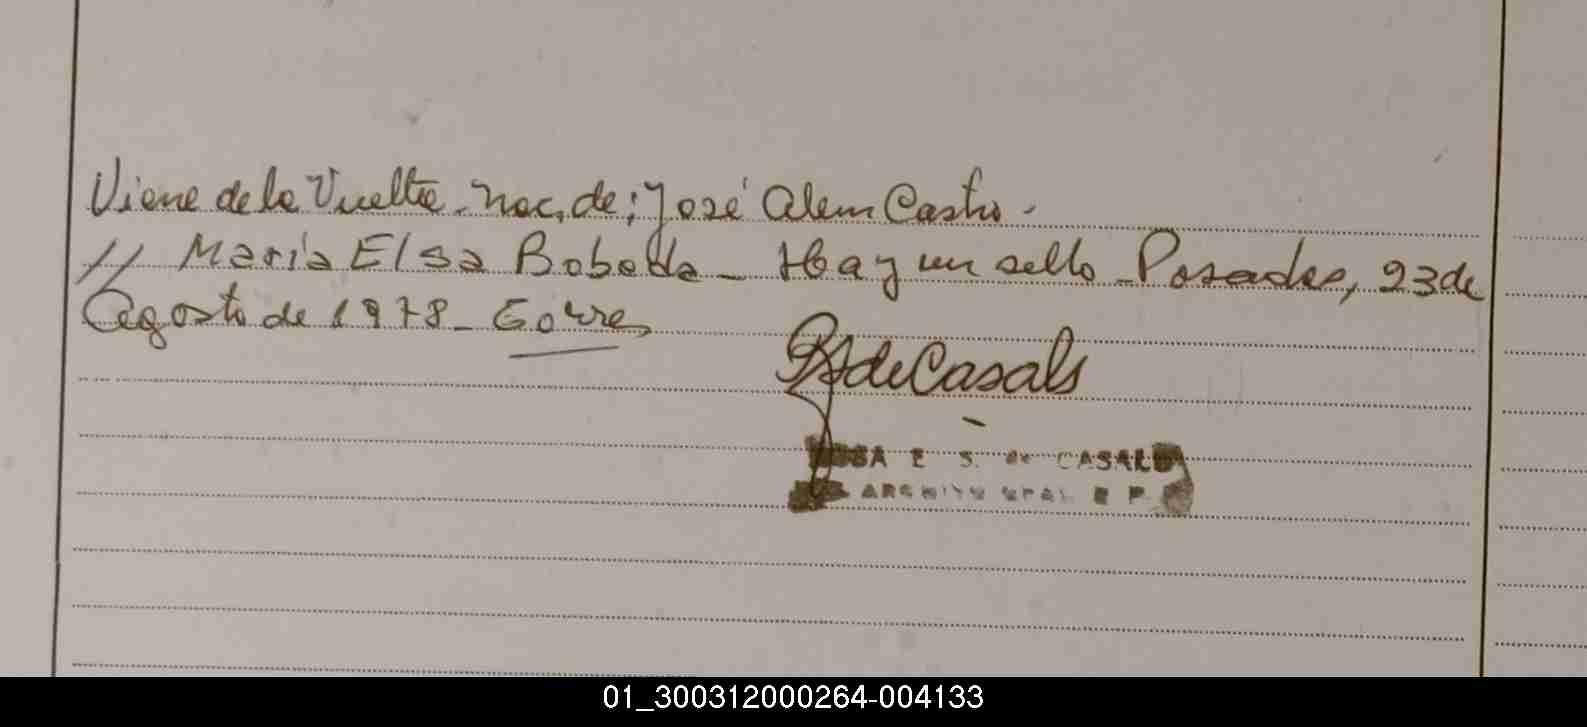 Viene de la Vuelta. Nac. de; José Alem Castro.
// María Elsa Bobeda - Hay un sello - Posadas, 23 de
Agosto de 1978 -
RS de Casals
E S. de CASALS
ARCHIVO GRAL R P
01_300312000264-004133